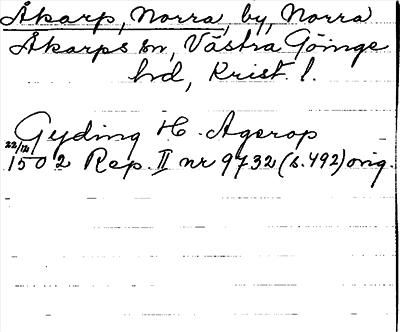 Åkarp, Norra, by, Norra
Åkarps sn, Västra Göinge
hd, Krist. l.
Gyding H. Agerop
22/12
1502 Rep. II nr 9732 (s. 492) orig.